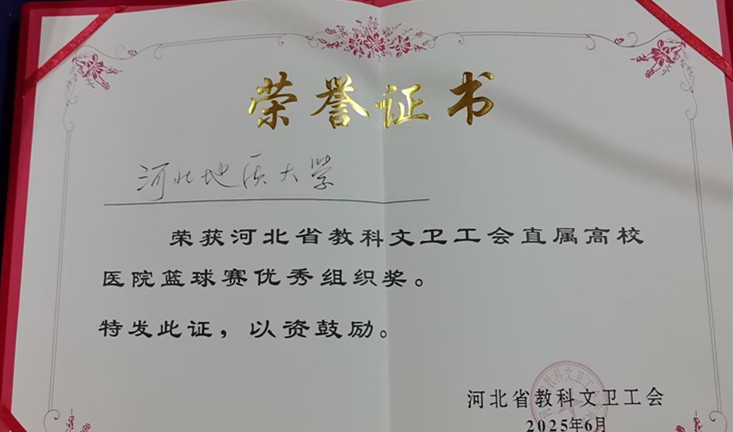 荣誉证书
河北地质大学
荣获河北省教科文卫工会直属高校
医院篮球赛优秀组织奖。
特发此证，以资鼓励。
河北省教科文卫工会
2025年6月